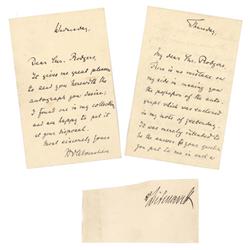 Wednesday
Dear Mrs. Rodgers,
It gives me great pleasure
to send you herewith the
autograph you desire;
I found one in my collection
and am happy to put it
at your disposal.
Most sincerely yours
Thursday
My dear Mrs. Rodgers,
There is no mistake on
my side in making you
the possessor of the auto-
graph which was enclosed
in my note of yesterday.
It was merely intended to
be the answer to your question
you put to me in such a